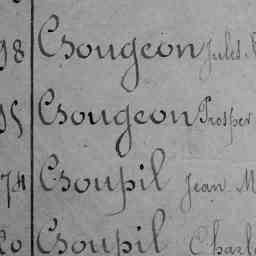 98 Gougeon Jules
95 Gougeon Prosper
74 Goupil Jean M
20 Goupil Charl